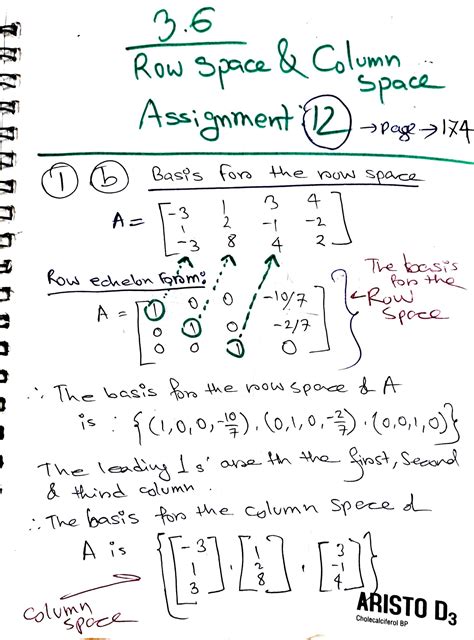 3.6
Row Space & Column
Space
Assignment 12 → page → 174
1 b Basis for the row space
A = [ -3 1 3 4
1 2 -1 -2
-3 8 4 2 ]
Row echelon form:
A = [ 1 0 0 -10/7
0 1 0 -2/7
0 0 1 0 ]
The basis
for the
← Row
Space
∴ The basis for the row space of A
is : {(1,0,0,-10/7), (0,1,0,-2/7), (0,0,1,0)}
The leading 1s' are in the first, Second
& third column.
∴ The basis for the column space of
A is { [ -3 1 3 ], [ 1 2 8 ], [ 3 -1 4 ] }
column
space
ARISTO D3
Cholecalciferol BP